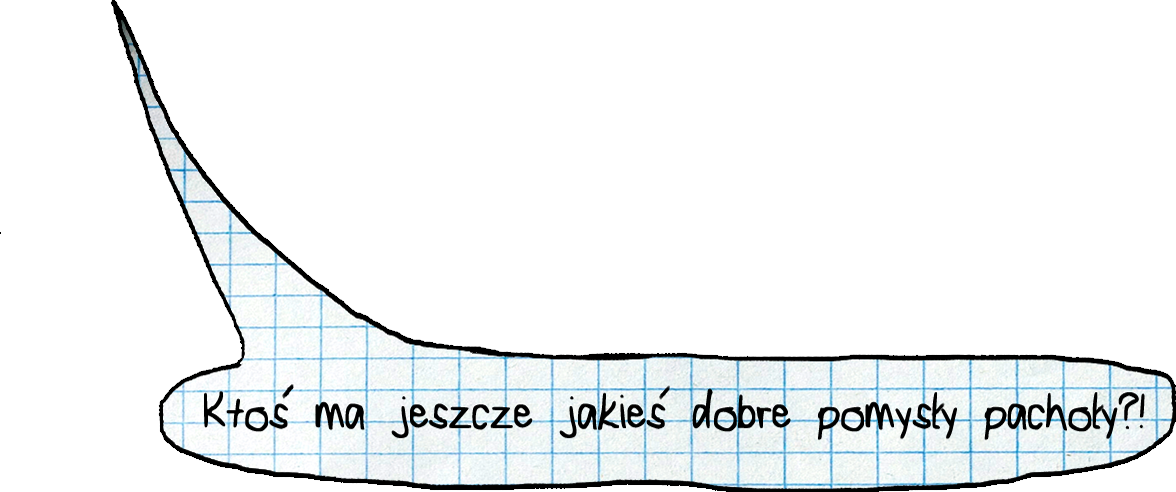 Ktoś ma jeszcze jakieś dobre pomysły pachoły?!